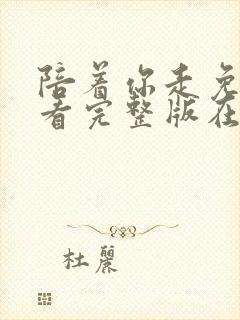 陪着你走免
看完整版在
杜麗